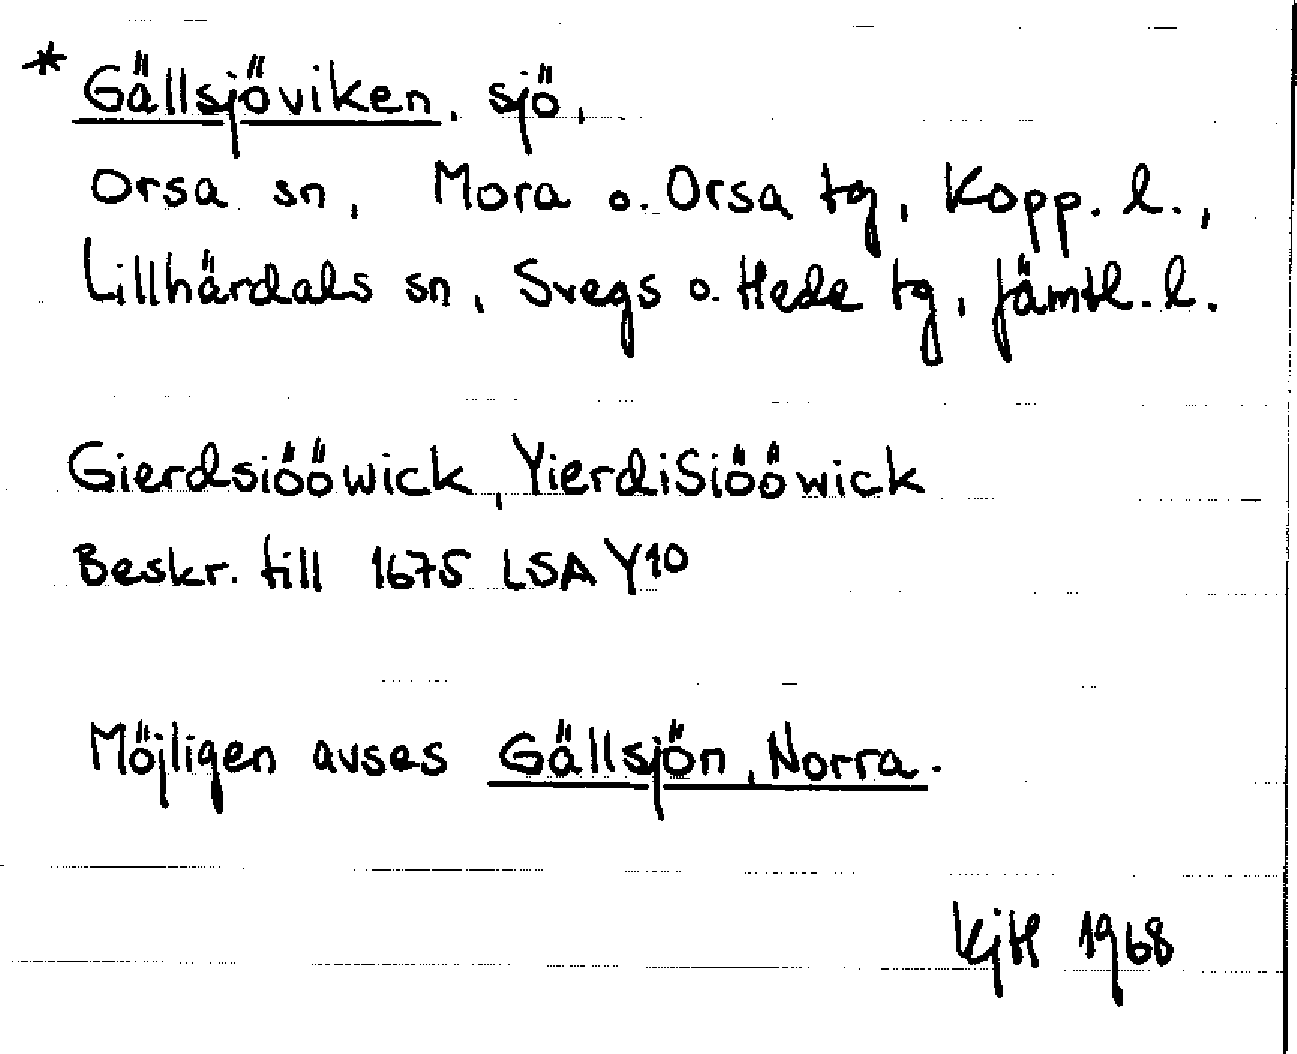 * Gällsjöviken, sjö,
Orsa sn, Mora o. Orsa tg, Kopp. l.,
Lillhärdals sn, Svegs o. Hede tg, Jämtl. l.
Gierdsiööwick, YierdiSiööwick
Beskr. till 1675 LSA Y10
Möjligen avses Gällsjön, Norra.
KjH 1968